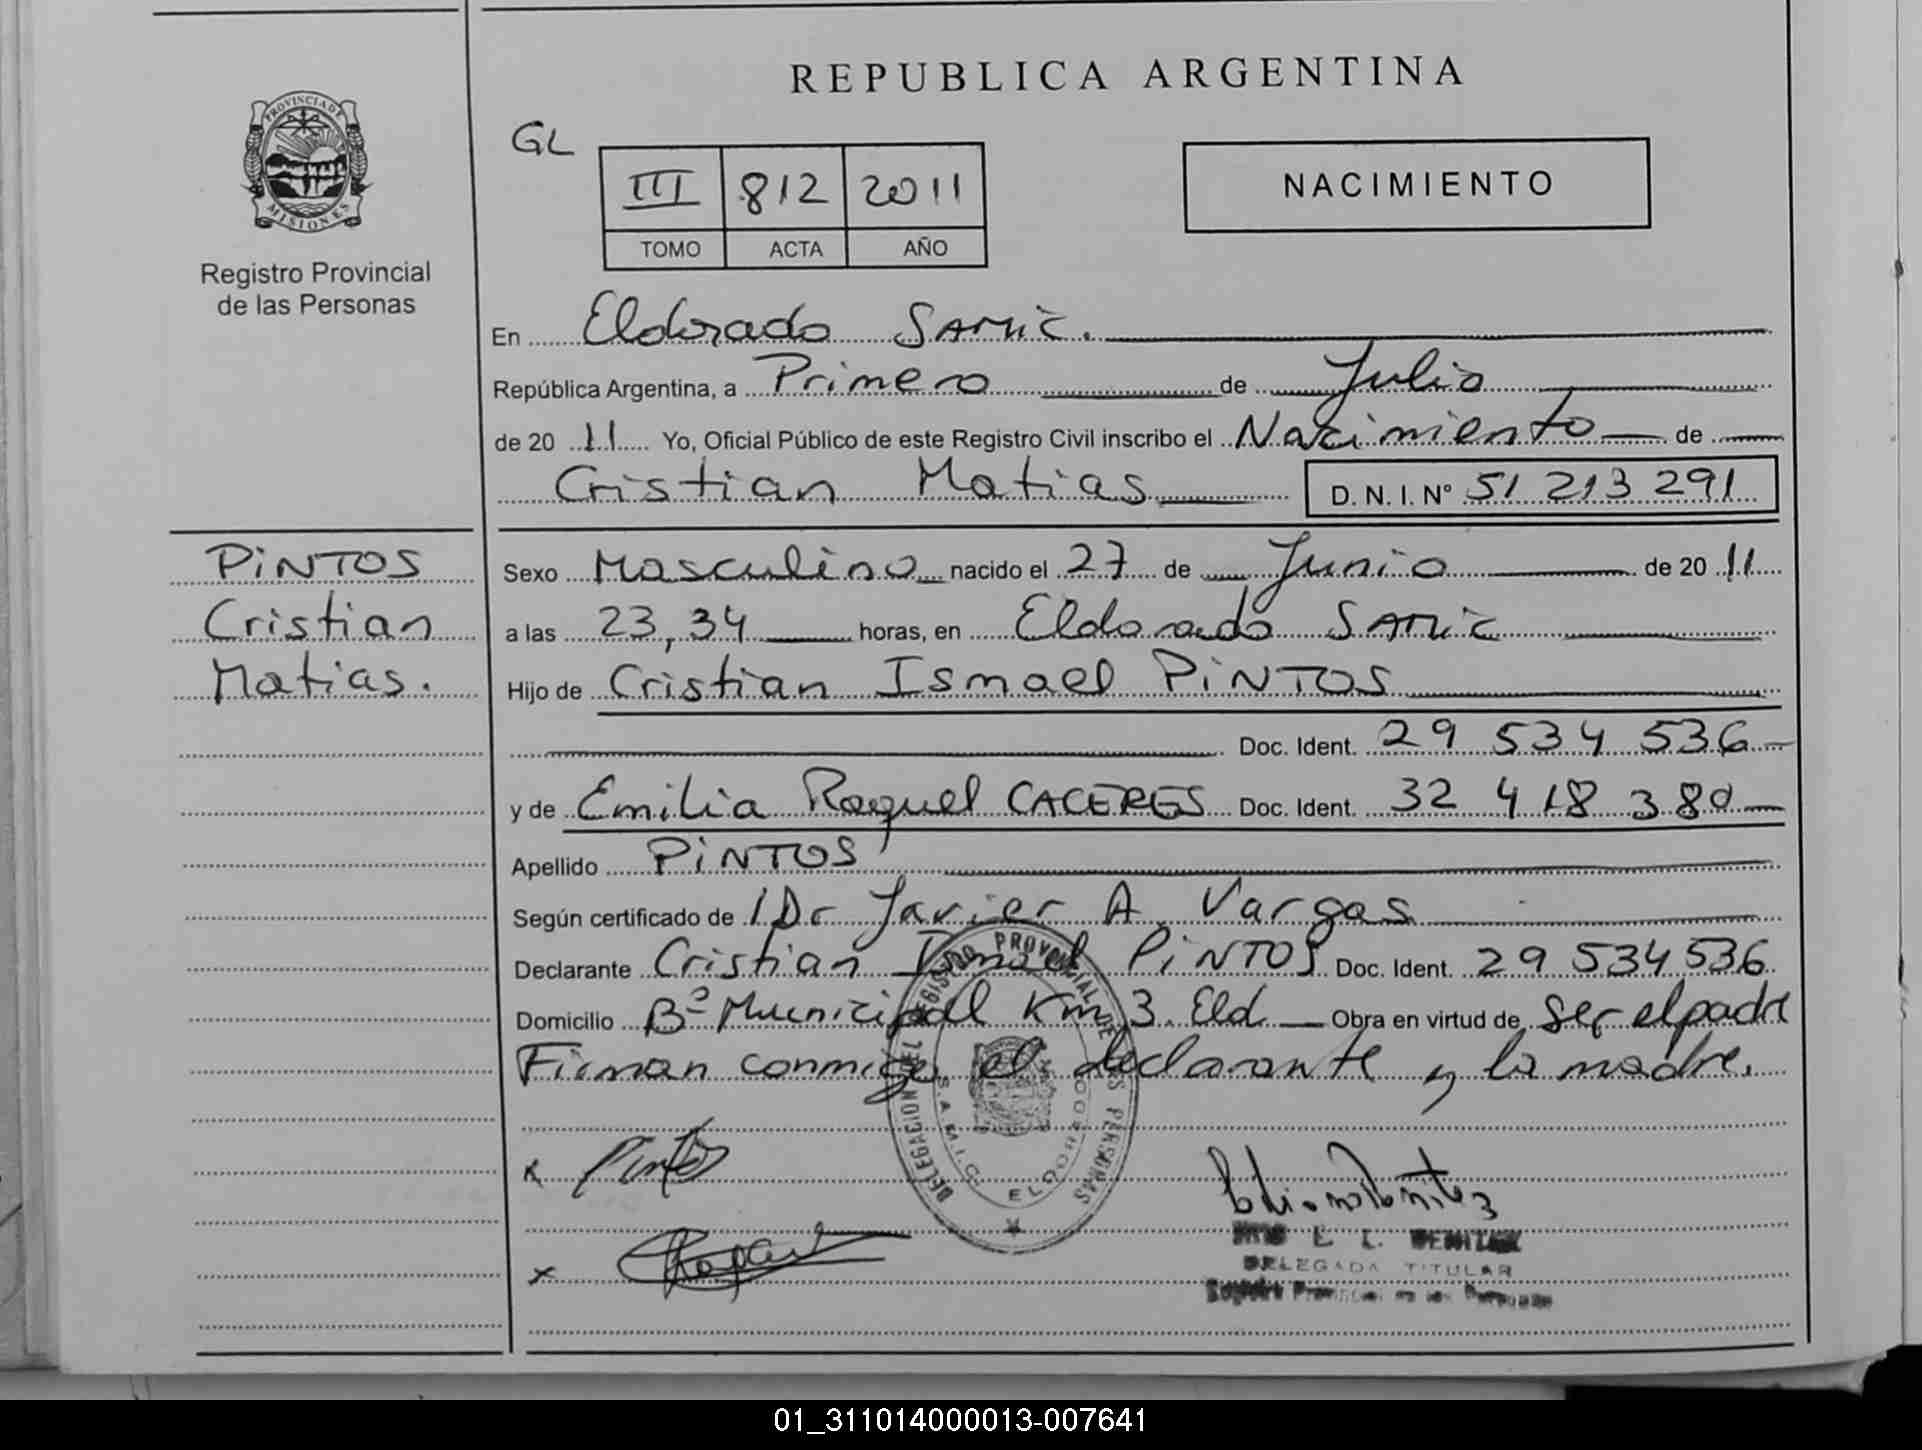 REPUBLICA ARGENTINA
PROVINCIA DE
MISIONES
Registro Provincial
de las Personas
GL
III 812 2011
TOMO ACTA AÑO
NACIMIENTO
En Eldorado SAMIC.
República Argentina, a Primero de Julio
de 20 11 Yo, Oficial Público de este Registro Civil inscribo el Nacimiento de
Cristian Matias D.N.I. Nº 51 213 291
PINTOS
Cristian
Matias.
Sexo Masculino nacido el 27 de Junio de 20 11
a las 23,34 horas, en Eldorado SAMIC
Hijo de Cristian Ismael PINTOS
Doc. Ident. 29 534 536
y de Emilia Raquel CACERES Doc. Ident. 32 418 380
Apellido PINTOS
Según certificado de Dr Javier A. Vargas
Declarante Cristian Ismael PINTOS Doc. Ident. 29 534 536
Domicilio Bº Municipal Km 3. Eld. Obra en virtud de ser el padre
Firman conmigo el declarante y la madre.
DELEGACION DEL REGISTRO PROVINCIAL DE LAS PERSONAS
S.A.M.I.C. ELDORADO
x Pintos
x
DELEGADA TITULAR
01_311014000013-007641